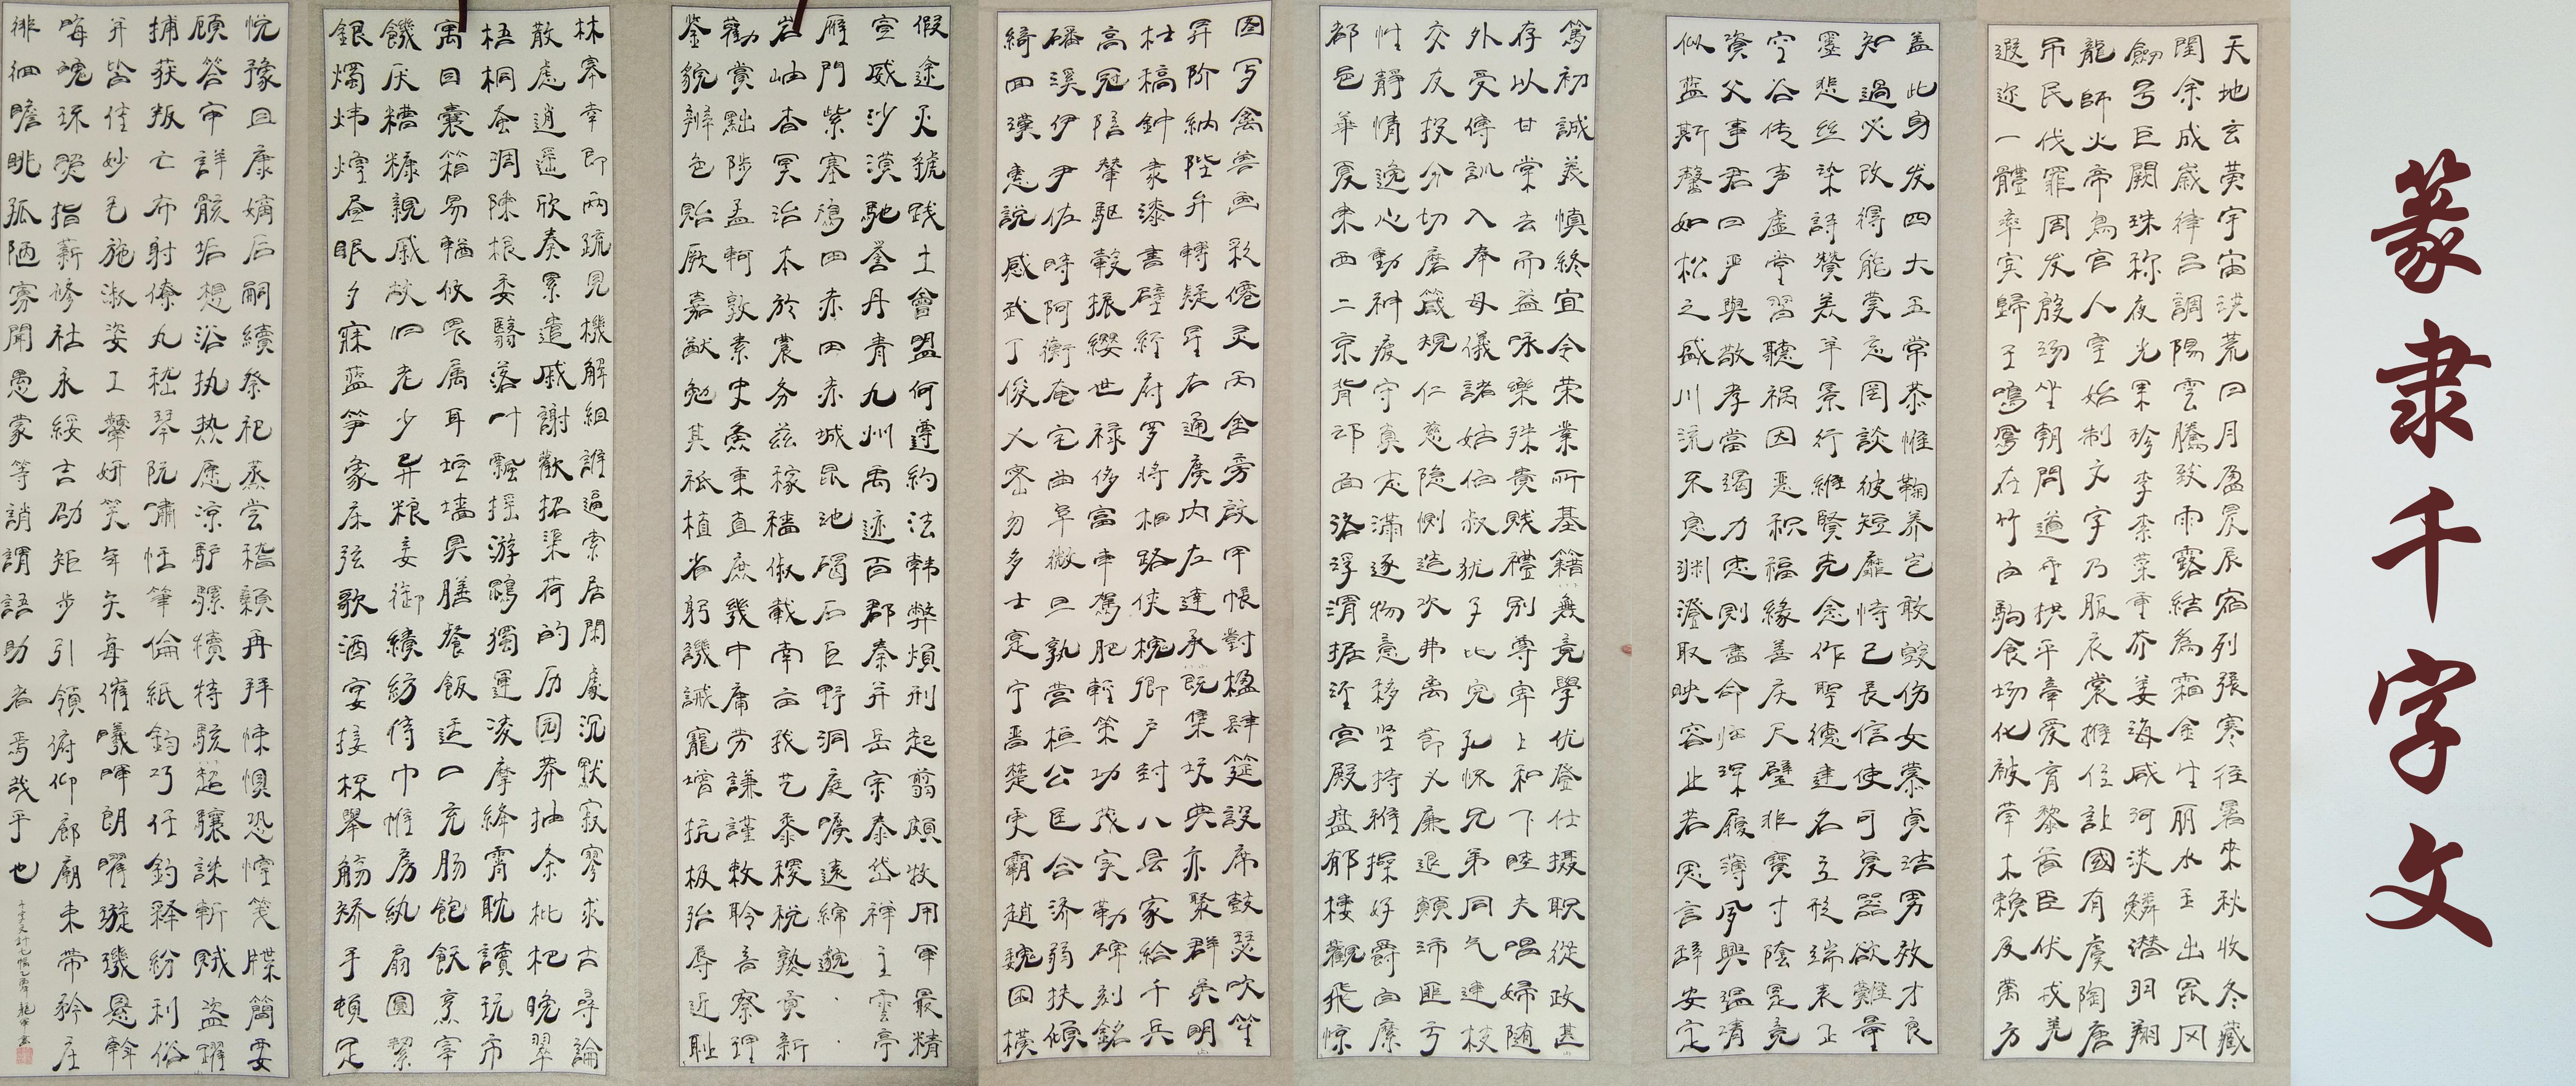 篆隶千字文
天地玄黄宇宙洪荒日月盈昃辰宿列張寒往暑來秋收冬藏
閏余成歲律吕調陽雲騰致雨露結為霜金生丽水玉出昆冈
劍号巨闕珠称夜光果珍李柰菜重芥姜海咸河淡鱗潜羽翔
龍師火帝鳥官人皇始制文字乃服衣裳推位让國有虞陶唐
吊民伐罪周发殷湯坐朝問道垂拱平章爱育黎首臣伏戎羌
遐迩一體率宾歸王鳴鳳在竹白駒食场化被草木赖及萬方
盖此身发四大五常恭惟鞠养岂敢毁伤女慕貞洁男效才良
知過必改得能莫忘罔談彼短靡恃己長信使可复器欲難量
墨悲丝染詩赞羔羊景行維賢克念作聖德建名立形端表正
空谷传声虚堂習聽祸因恶积福緣善庆尺璧非寶寸陰是竞
資父事君曰严與敬孝當竭力忠则盡命临深履薄夙興温凊
似蓝斯馨如松之盛川流不息渊澄取映容止若思言辞安定
篤初誠美慎終宜令荣業所基籍無竟學优登仕摄职從政甚
存以甘棠去而益咏樂殊貴贱禮别尊卑上和下睦夫唱婦随
外受傅訓入奉母儀諸姑伯叔犹子比兒孔怀兄弟同气連枝
交友投分切磨箴規仁慈隐恻造次弗离節义廉退顛沛匪亏
性靜情逸心動神疲守真志满逐物意移坚持雅操好爵自縻
都邑華夏東西二京背邙面洛浮渭据泾宫殿盘郁樓觀飛惊
图写禽兽画彩僊灵丙舍旁啟甲帳對楹肆筵設席鼓瑟吹笙
升阶納陛弁轉疑星右通廣内左達承既集坟典亦聚群英明
杜稿鍾隶漆書壁經府罗将相路侠槐卿户封八县家給千兵
高冠陪辇驱毂振缨世禄侈富車駕肥輕策功茂实勒碑刻銘
磻溪伊尹佐時阿衡奄宅曲阜微旦孰营桓公匡合济弱扶傾
綺回漢惠說感武丁俊乂密勿多士寔宁晋楚更霸趙魏困横
假途灭虢践土會盟何遵約法韩弊煩刑起翦頗牧用軍最精
宣威沙漠馳誉丹青九州禹迹百郡秦并岳宗泰岱禅主雲亭
雁門紫塞鸡四赤田赤城昆池碣石巨野洞庭曠遠綿邈
岩岫杳冥治本於農务兹稼穑俶載南亩我艺黍稷税熟貢新
勸賞黜陟孟軻敦素史魚秉直庶幾中庸劳謙謹敕聆音察理
鉴貌辨色貽厥嘉猷勉其祗植省躬譏誡寵增抗极殆辱近耻
林皋幸即兩疏見機解組誰逼索居閑處沉默寂寥求古尋論
散虑逍遥欣奏累遣戚謝歡招渠荷的历园莽抽条枇杷晚翠
梧桐蚤凋陳根委翳落叶飄摇游鹍獨運凌摩絳霄耽讀玩市
寓目囊箱易輶攸畏属耳垣墙具膳餐飯适口充肠飽飫烹宰
饑厌糟糠親戚故旧老少异粮妾御績紡侍巾帷房紈扇圓絜
銀燭炜煌昼眠夕寐蓝笋象床弦歌酒宴接杯舉觞矫手頓足
悦豫且康嫡后嗣續祭祀蒸尝稽顙再拜悚惧恐惶笺牒簡要
顧答审詳骸垢想浴执热愿凉驴骡犊特駭超驤誅斬贼盗躍
捕获叛亡布射僚丸嵇琴阮嘯恬筆倫紙鈞巧任釣释紛利俗
并皆佳妙毛施淑姿工顰妍笑年矢每催曦暉朗曜璇璣悬斡
晦魄环照指薪修祜永綏吉劭矩步引領俯仰廊廟束带矜庄
徘徊瞻眺孤陋寡聞愚蒙等誚謂語助者焉哉乎也